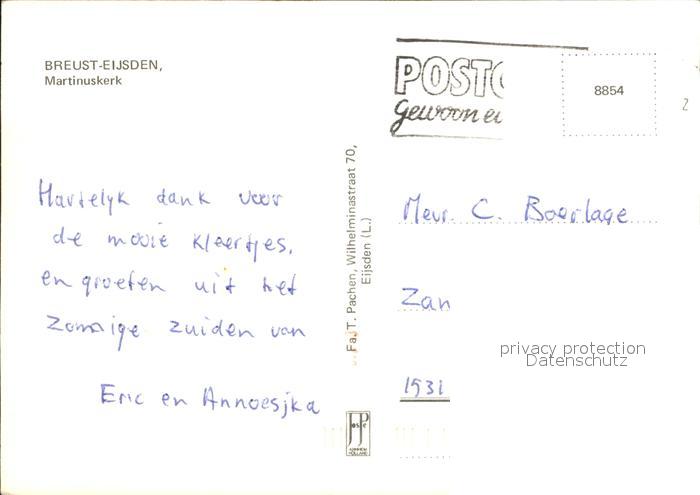 BREUST-EIJSDEN,
Martinuskerk
Hartelyk dank voor
de mooie kleertjes,
en groeten uit het
Zonnige zuiden van
Eric en Annoesjka
Fa. T. Pachen, Wilhelminastraat 70,
Eijsden (L.)
JosPé
ARNHEM
HOLLAND
POSTC
Gewoon ei
8854
2
Mevr. C. Boerlage
Zan
1931
privacy protection
Datenschutz